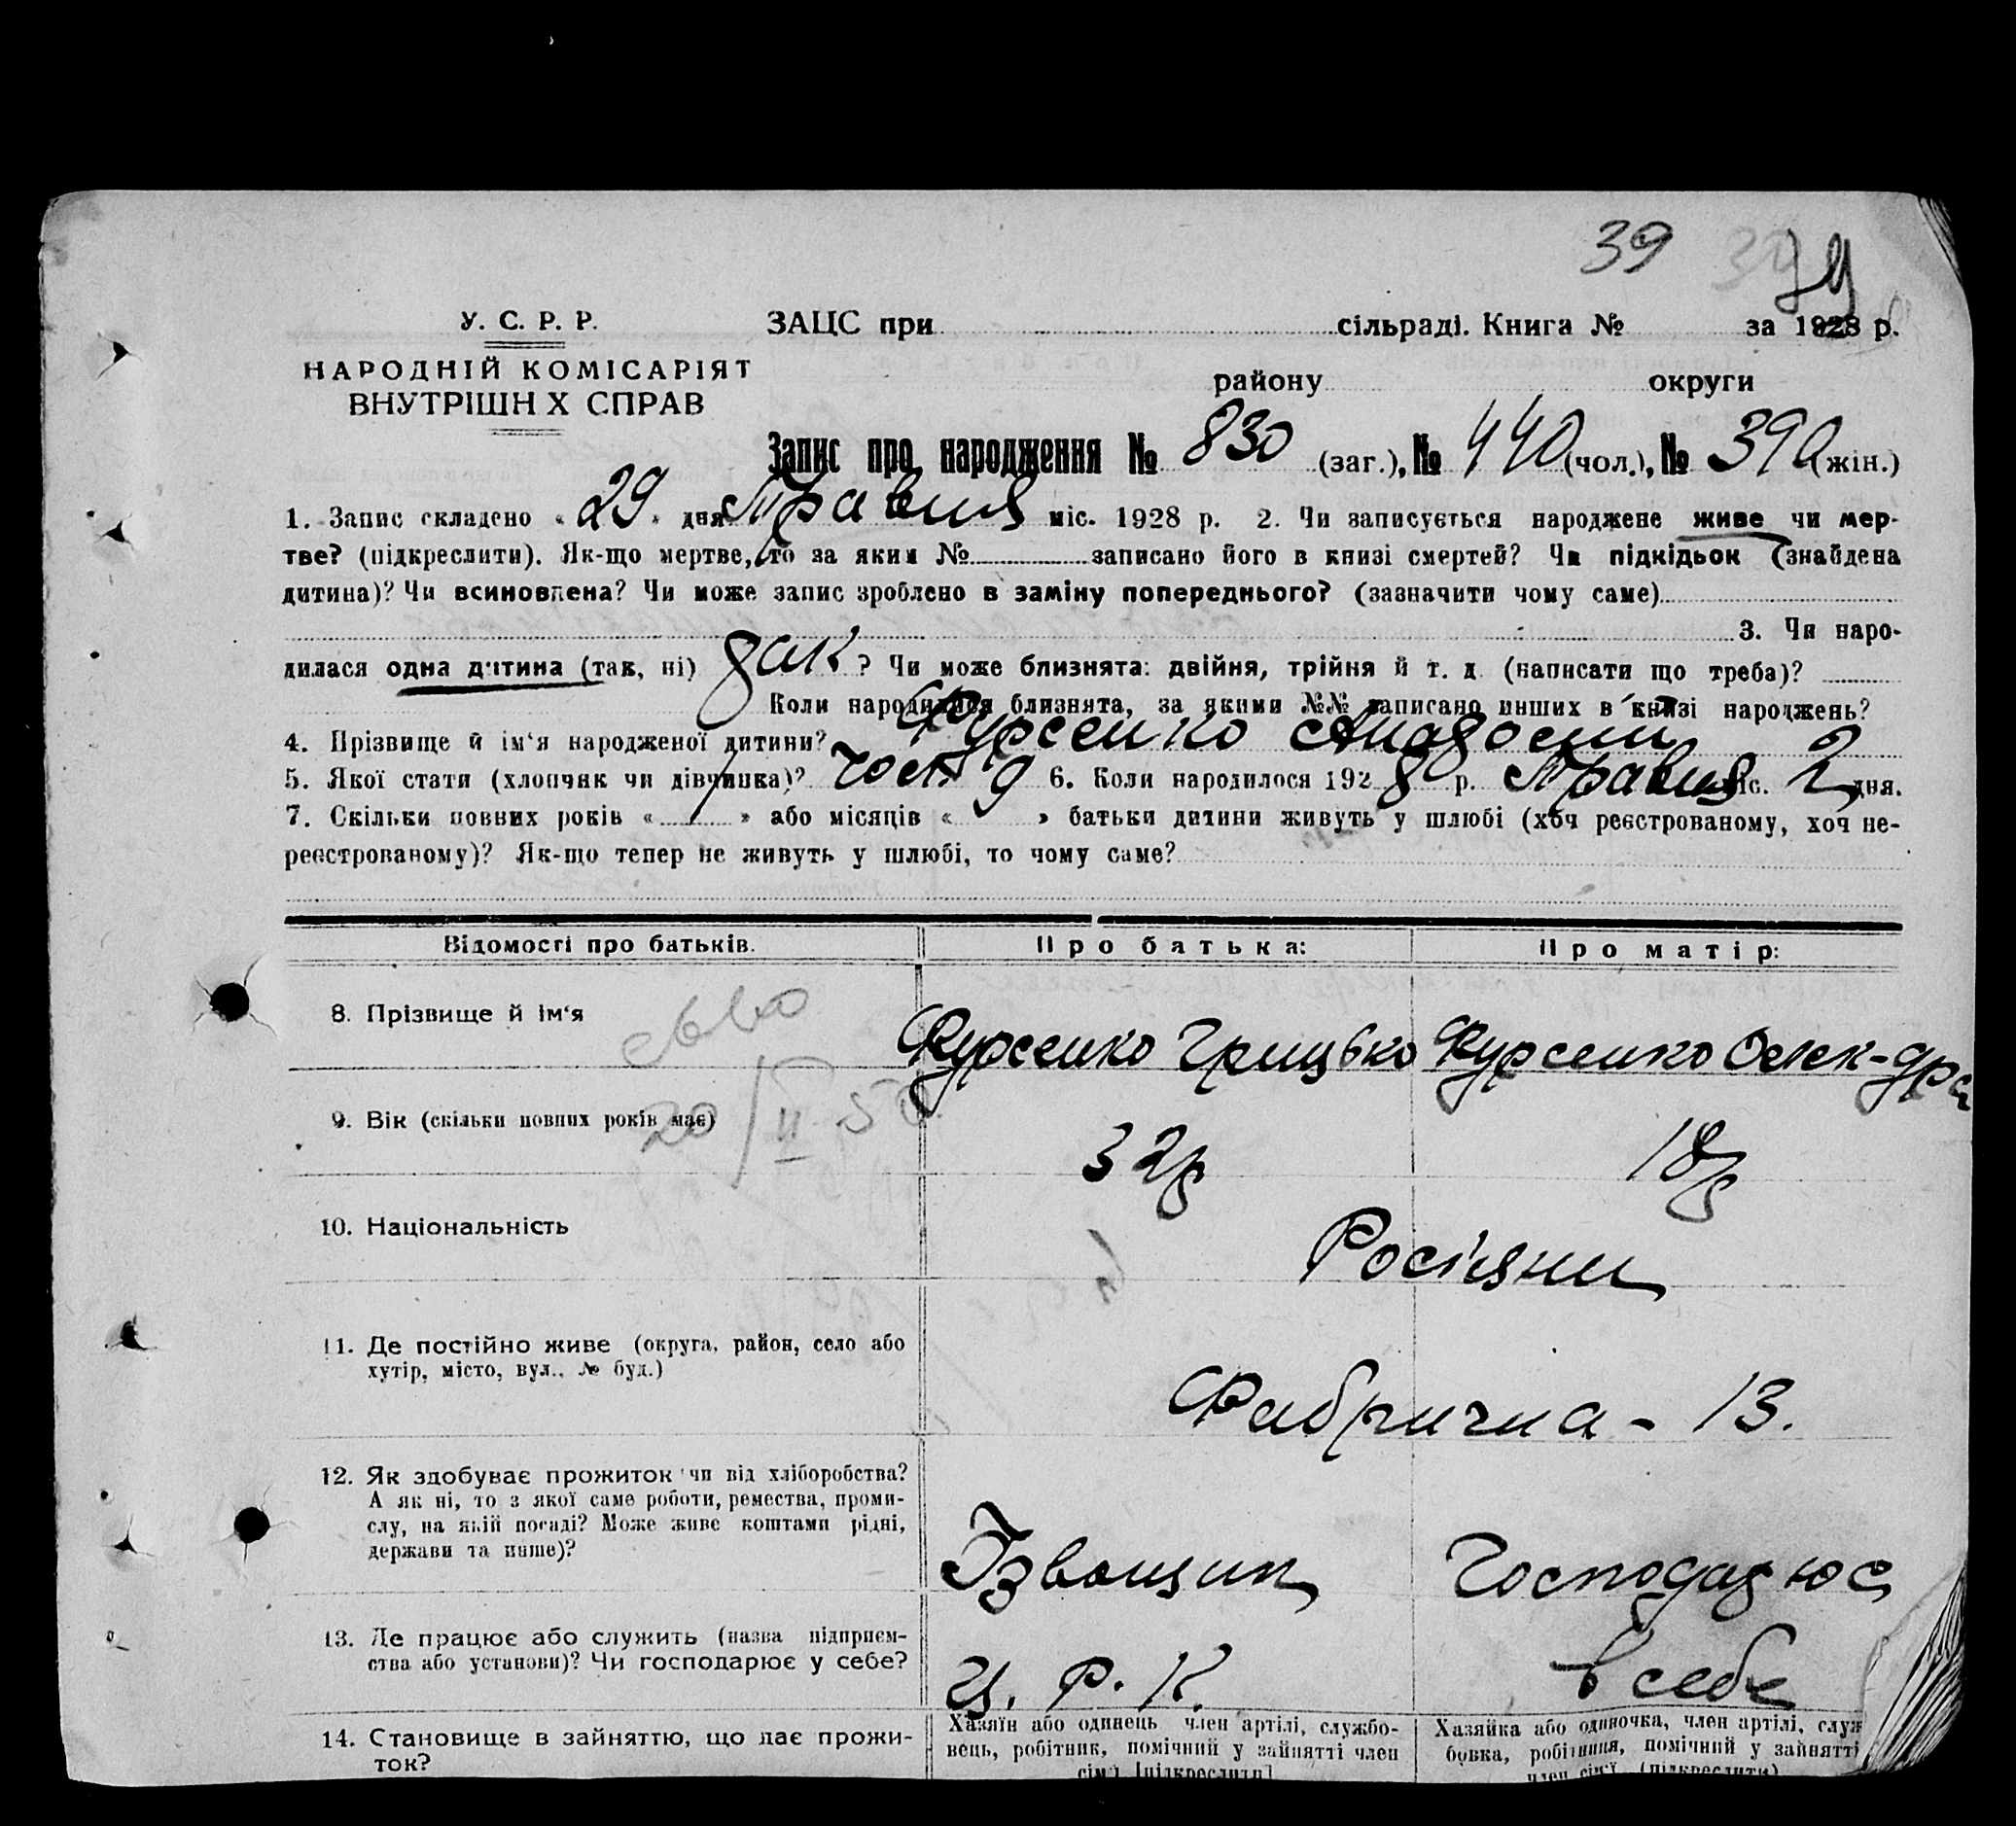 39
У. С. Р. Р.
ЗАЦС при сільраді. Книга № за 1928 р.
НАРОДНІЙ КОМІСАРІЯТ
ВНУТРІШН Х СПРАВ
району округи
Запис про народження № 830 (заг.), № 440 (чол.), № 390 (жін.)
1. Запис складено « 29 » дня Травня міс. 1928 р. 2. Чи записується народжене живе чи мер-
тве? (підкреслити). Як-що мертве, то за яким № записано його в книзі смертей? Чи підкідьок (знайдена
дитина)? Чи всиновлена? Чи може запис зроблено в заміну попереднього? (зазначити чому саме)
3. Чи наро-
дилася одна дитина (так, ні) так ? Чи може близнята: двійня, трійня й т. д. (написати що треба)?
Коли народилися близнята, за якими №№ записано инших в книзі народжень?
4. Прізвище й ім‘я народженої дитини? Фурсенко
5. Якої стати (хлопчик чи дівчинка)? 6. Коли народилося 1928 р. Травня міс. 2 дня.
7. Скільки повних років « » або місяців « » батьки дитини живуть у шлюбі (хоч реєстрованому, хоч не-
реєстрованому)? Як-що тепер не живуть у шлюбі, то чому саме?
Відомості про батьків. Про батька: Про матір:
8. Прізвище й ім‘я Фурсенко Грицько Фурсенко Олек-дра
9. Вік (скільки повних років має) 32р 18р
20/II 50
10. Національність Росіяни
11. Де постійно живе (округа, район, село або
хутір, місто, вул., № буд.)
Фабрична - 13.
12. Як здобуває прожиток чи від хліборобства?
А як ні, то з якої саме роботи, ремества, проми-
слу, на якій посаді? Може живе коштами рідні,
держави та инше)?
Ізвощик Господарює
13. Де працює або служить (назва підприєм-
ства або установи)? Чи господарює у себе?
Ц. Р. К. в себе
14. Становище в зайняттю, що дає прожи-
ток?
Хазяїн або одинець член артілі, службо-
вець, робітник, помічний у зайнятті член
сім'ї [підкреслити]
Хазяйка або одиночка, член артілі, служ
бовка, робітниця, помічний у зайнятті
член сім'ї (підкреслити)